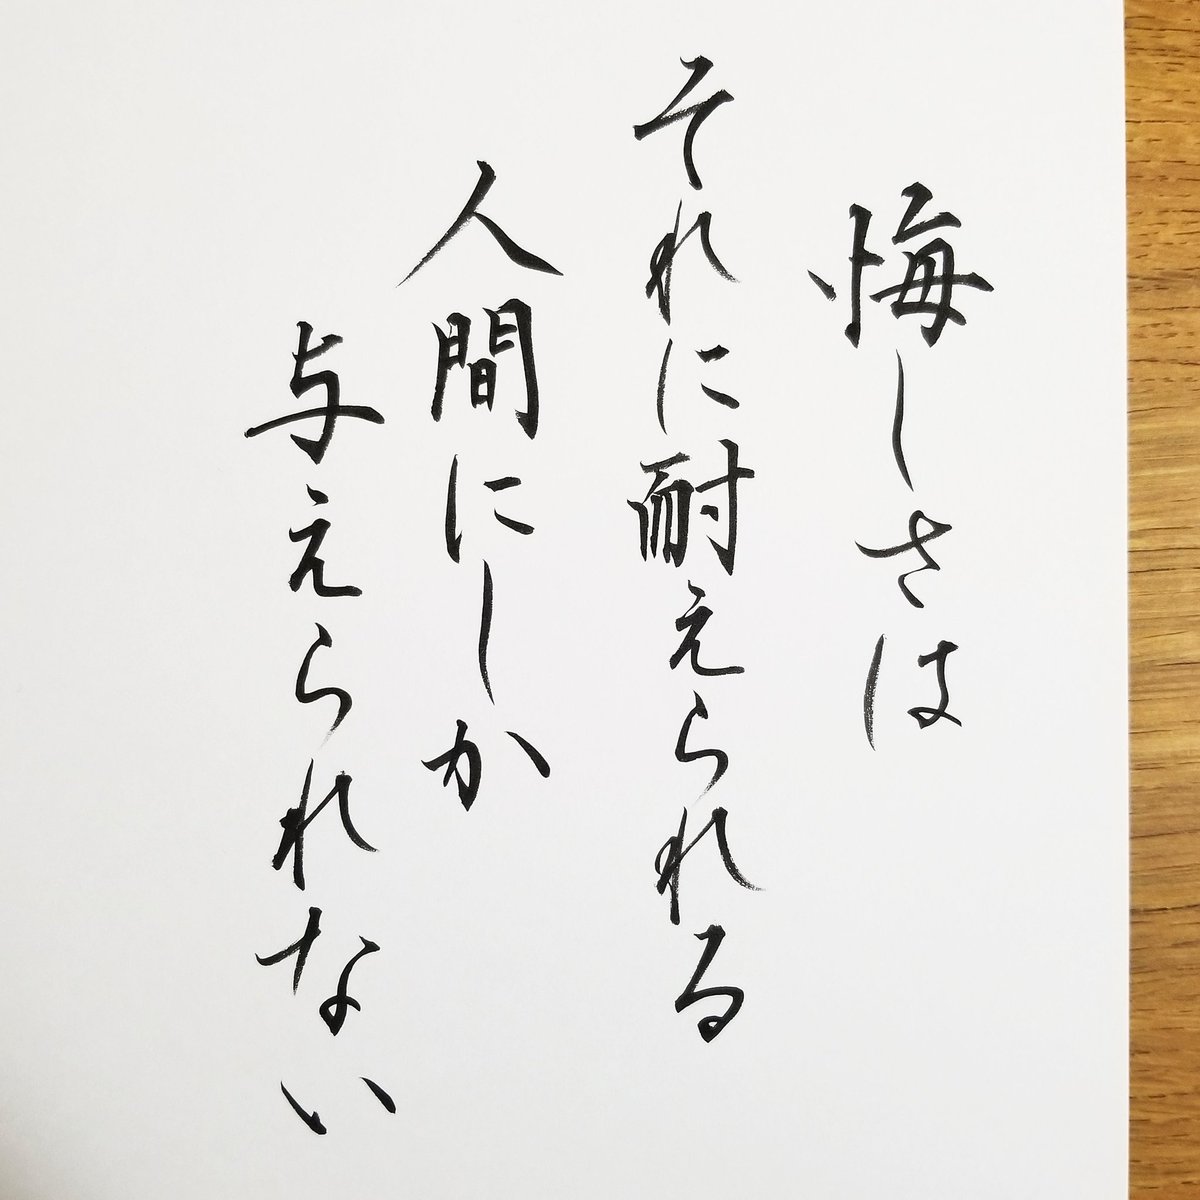 悔しさは
それに耐えられる
人間にしか
与えられない